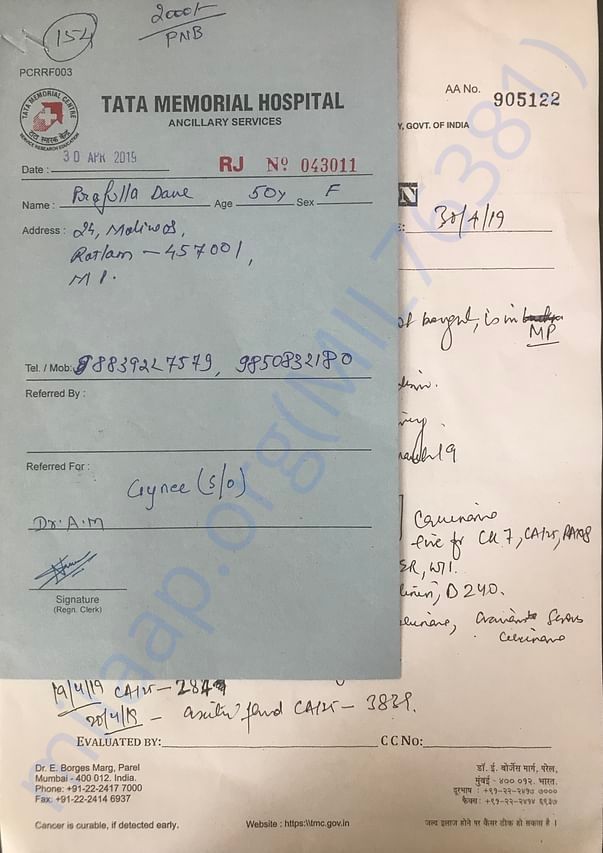 154
2000/-
PNB
PCRRF003
TATA MEMORIAL CENTRE
टाटा स्मारक केन्द्र
SERVICE RESEARCH EDUCATION
TATA MEMORIAL HOSPITAL
ANCILLARY SERVICES
Date : 30 APR 2019 RJ Nº 043011
Name : Prafulla Dave Age 50y Sex F
Address : 24,
Ratlam - 457001,
M P.
Tel. / Mob: 98839227579, 9850832180
Referred By :
Referred For :
Gynec (S/O)
Dr. A.M
Signature
(Regn. Clerk)
AA No. 905122
Y, GOVT. OF INDIA
N
: 30/4/19
is in
MP
19
Carcinoma
+ive for CK 7, CA125, PAX8
ER, WT1.
D240.
Serous
Carcinoma
19/4/19 CA125 - 284
20/4/19 - fluid CA125 - 3839.
EVALUATED BY: CC No:
Dr. E. Borges Marg, Parel
Mumbai - 400 012. India.
Phone: +91-22-2417 7000
Fax: +91-22-2414 6937
डॉ. ई. बोर्जेस मार्ग, परेल,
मुंबई - ४०० ०१२. भारत.
दूरभाष : +९१-२२-२४१७ ७०००
फैक्स : +९१-२२-२४१४ ६९३७
Cancer is curable, if detected early. Website : https:\\tmc.gov.in जल्द इलाज होने पर कैंसर ठीक हो सकता है ।
milaap.org(MIL76381)